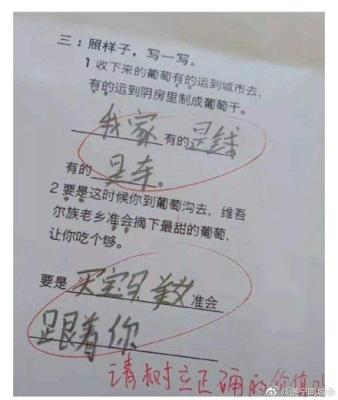 三：照样子，写一写。
1 收下来的葡萄有的运到城市去，
有的运到阴房里制成葡萄干。
我家有的是钱
有的是车。
2 要是这时候你到葡萄沟去，维吾
尔族老乡准会摘下最甜的葡萄，
让你吃个够。
要是买宝贝美女准会
跟着你
请树立正确的价值